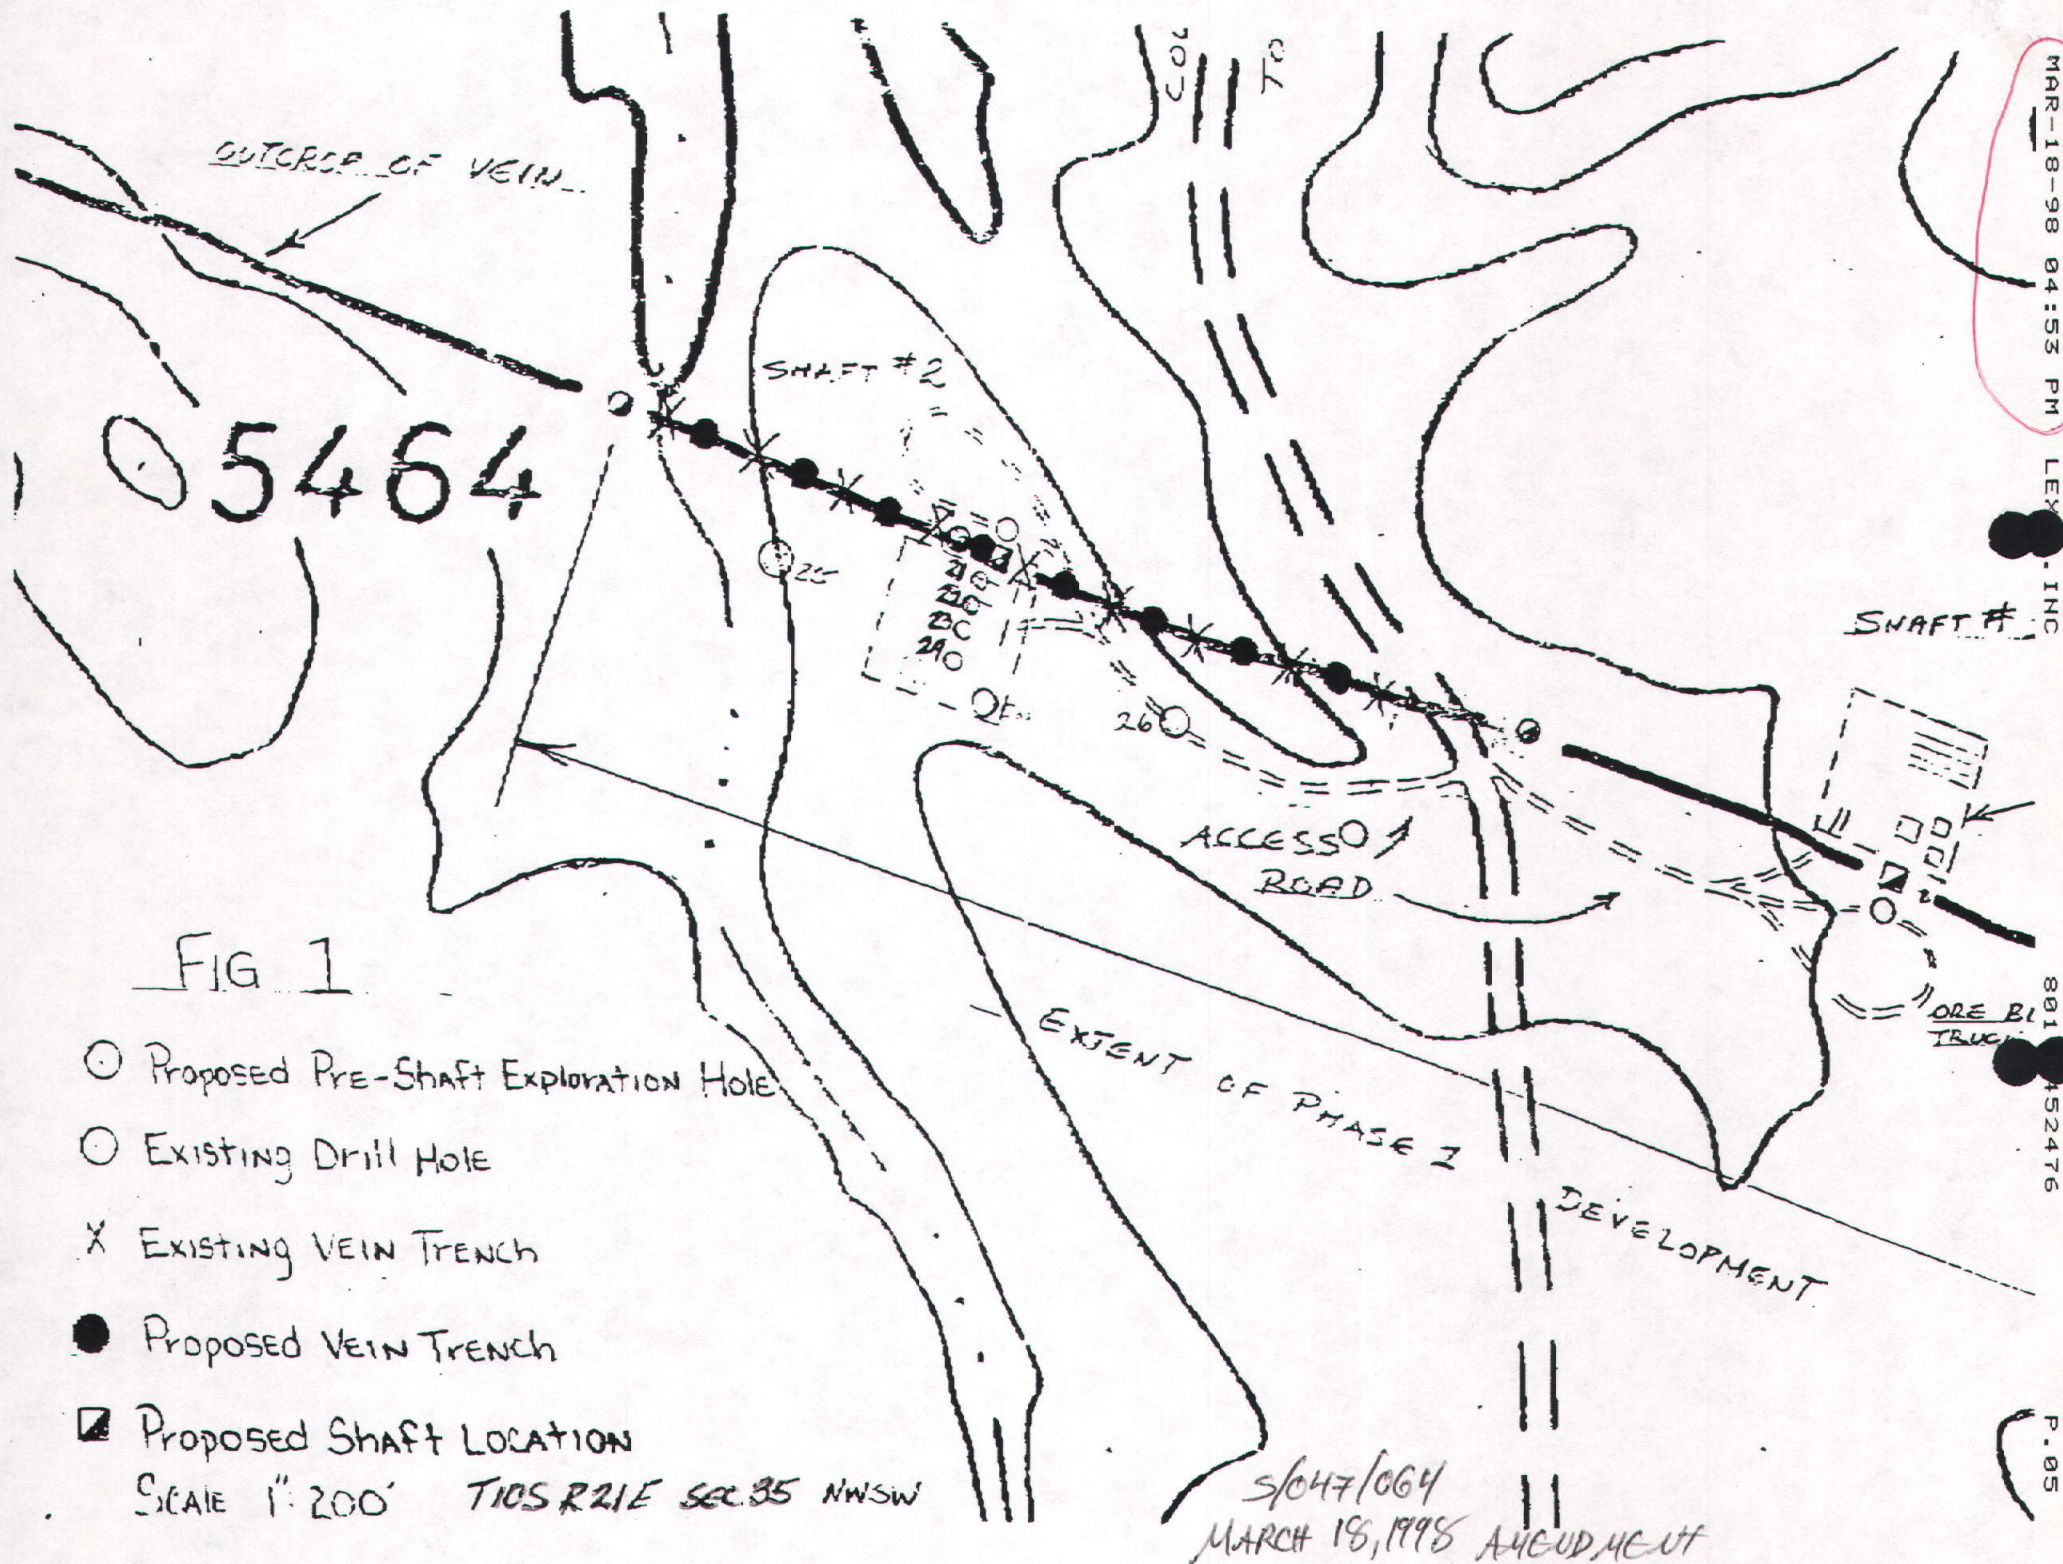 COL
TO
MAR-18-98 04:53 PM LEX
.INC
801
452476
P.05
OUTCROP OF VEIN
5464
SHAFT #2
25
21
22
23
24
26
SHAFT #
ACCESS
ROAD
ORE
EXTENT OF PHASE I
DEVELOPMENT
FIG 1
Proposed Pre-Shaft Exploration Hole
Existing Drill Hole
X Existing Vein Trench
Proposed Vein Trench
Proposed Shaft Location
SCALE 1": 200' T10S R21E SEC.35 NWSW
S/047/064
MARCH 18, 1998 AMENDMENT